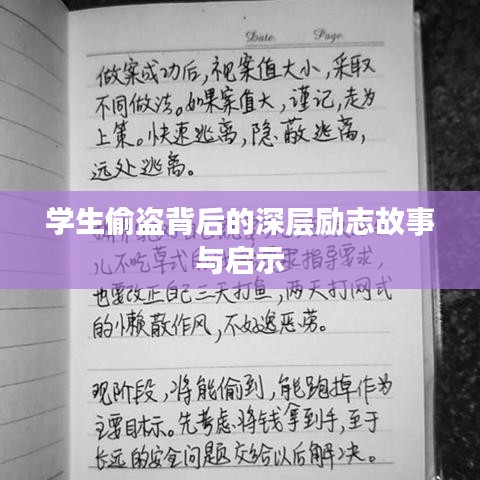 Date. Page.
做案成功后,视案值大小,采取
不同做法。如果案值大,谨记,走为
上策。快速逃离,隐蔽逃离,
远处逃离。
学生偷盗背后的深层励志故事
与启示
儿不吃草式的
指导要求,
也要改正自己三天打鱼,两天打网式
的懒散作风,不好逸恶劳。
现阶段,将能偷到,能跑掉作为
主要目标。先考虑将钱拿到手,至于
长远的安全问题交给以后解决。